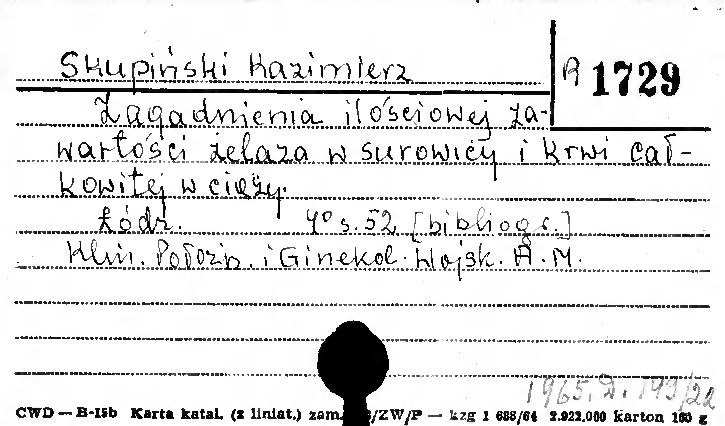 Skupiński Kazimierz
A 1729
Zagadnienia ilościowej za-
wartości żelaza w surowicy i krwi cał-
kowitej w ciąży.
Łódź. 4° s. 52 [bibliogr.]
Klin. Położn. i Ginekol. Wojsk. A. M.
1965. D.
CWD — B-15b Karta katal. (z liniat.) zam. /ZW/P — kzg 1 688/64 2.922.000 karton 160 g